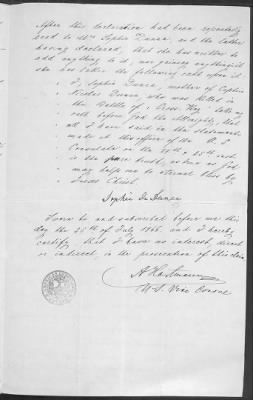 After this declaration had been repeatedly
read to Mrs Sophie Dunca, and the latter
having declared, that she has neither to
add anything to it, nor
she has taken the following oath upon it:
I, Sophie Dunca, mother of Captain
Nicolas Dunca who was killed in
the Battle of Cross Keys take my
oath before God the Almighty, that
all I have said in the statements
made at this office of the U. S
Consulate on the & 25th inst.
is the pure truth, as true as God
may help me to eternal bliss by
Jesus Christ.
Sophie de Dunca
Sworn to and subscribed before me this
day the 25th of July 1866. and I hereby
certify, that I have no interest, direct
or indirect, in the prosecution of this claim
U. S. Vice Consul